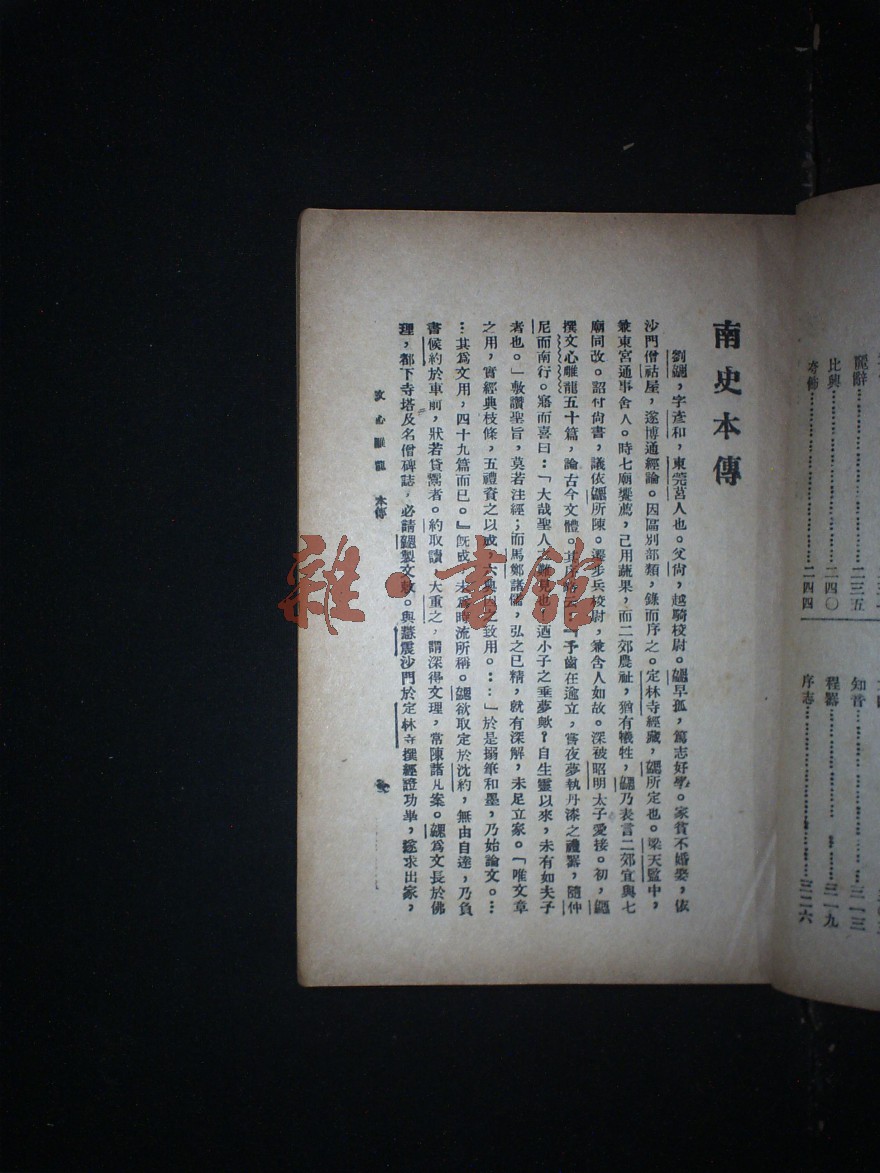 麗辭 二三五
比興 二四〇
夸飾 二四四
知音 三一三
程器 三一九
序志 三二六
南史本傳
劉勰，字彥和，東莞莒人也。父尙，越騎校尉。勰早孤，篤志好學。家貧不婚娶，依
沙門僧祐居，遂博通經論。因區別部類，錄而序之。定林寺經藏，勰所定也。梁天監中，
兼東宮通事舍人。時七廟饗薦，已用蔬果，而二郊農社，猶有犧牲，勰乃表言二郊宜與七
廟同改。詔付尙書，議依勰所陳。遷步兵校尉，兼舍人如故。深被昭明太子愛接。初，勰
撰文心雕龍五十篇，論古今文體。其序略云，「予齒在逾立，嘗夜夢執丹漆之禮器，隨仲
尼而南行。寤而喜曰：「大哉聖人之難見也！迺小子之垂夢歟？自生靈以來，未有如夫子
者也。」敷讚聖旨，莫若注經；而馬鄭諸儒，弘之已精，就有深解，未足立家。「唯文章
之用，實經典枝條，五禮資之以成，六典因之致用。…」於是搦筆和墨，乃始論文。…
…其爲文用，四十九篇而已。』旣成，未爲時流所稱。勰欲取定於沈約，無由自達，乃負
書候約於車前，狀若貨鬻者。約取讀，大重之，謂深得文理，常陳諸几案。勰爲文長於佛
理，都下寺塔及名僧碑誌，必請勰製文。與慧震沙門於定林寺撰經證功畢，遂求出家，
文心雕龍 本傳
雜·書館